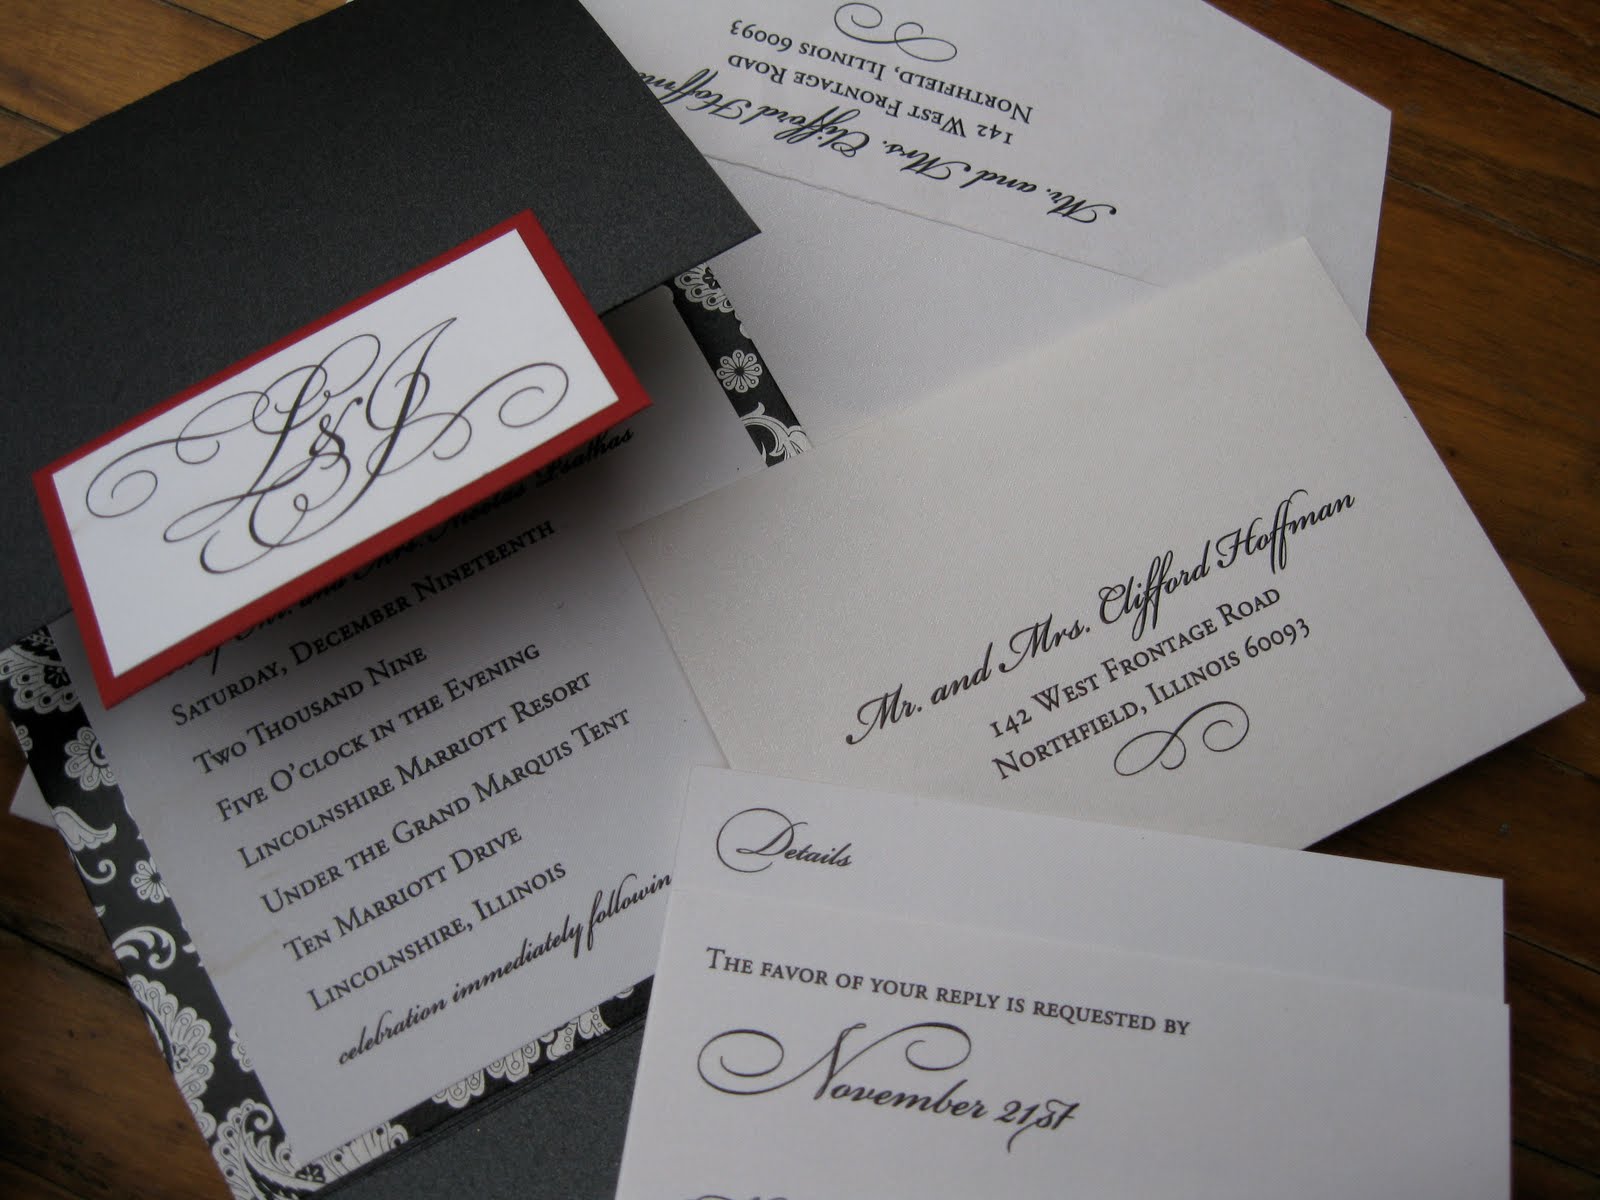 Mr. and Mrs. Clifford
142 West Frontage Road
Northfield, Illinois 60093
L&J
Mr. and Mrs. Nicolas Psathas
Saturday, December Nineteenth
Two Thousand Nine
Five O'clock in the Evening
Lincolnshire Marriott Resort
Under the Grand Marquis Tent
Ten Marriott Drive
Lincolnshire, Illinois
celebration immediately
Mr. and Mrs. Clifford Hoffman
142 West Frontage Road
Northfield, Illinois 60093
Details
The favor of your reply is requested by
November 21st